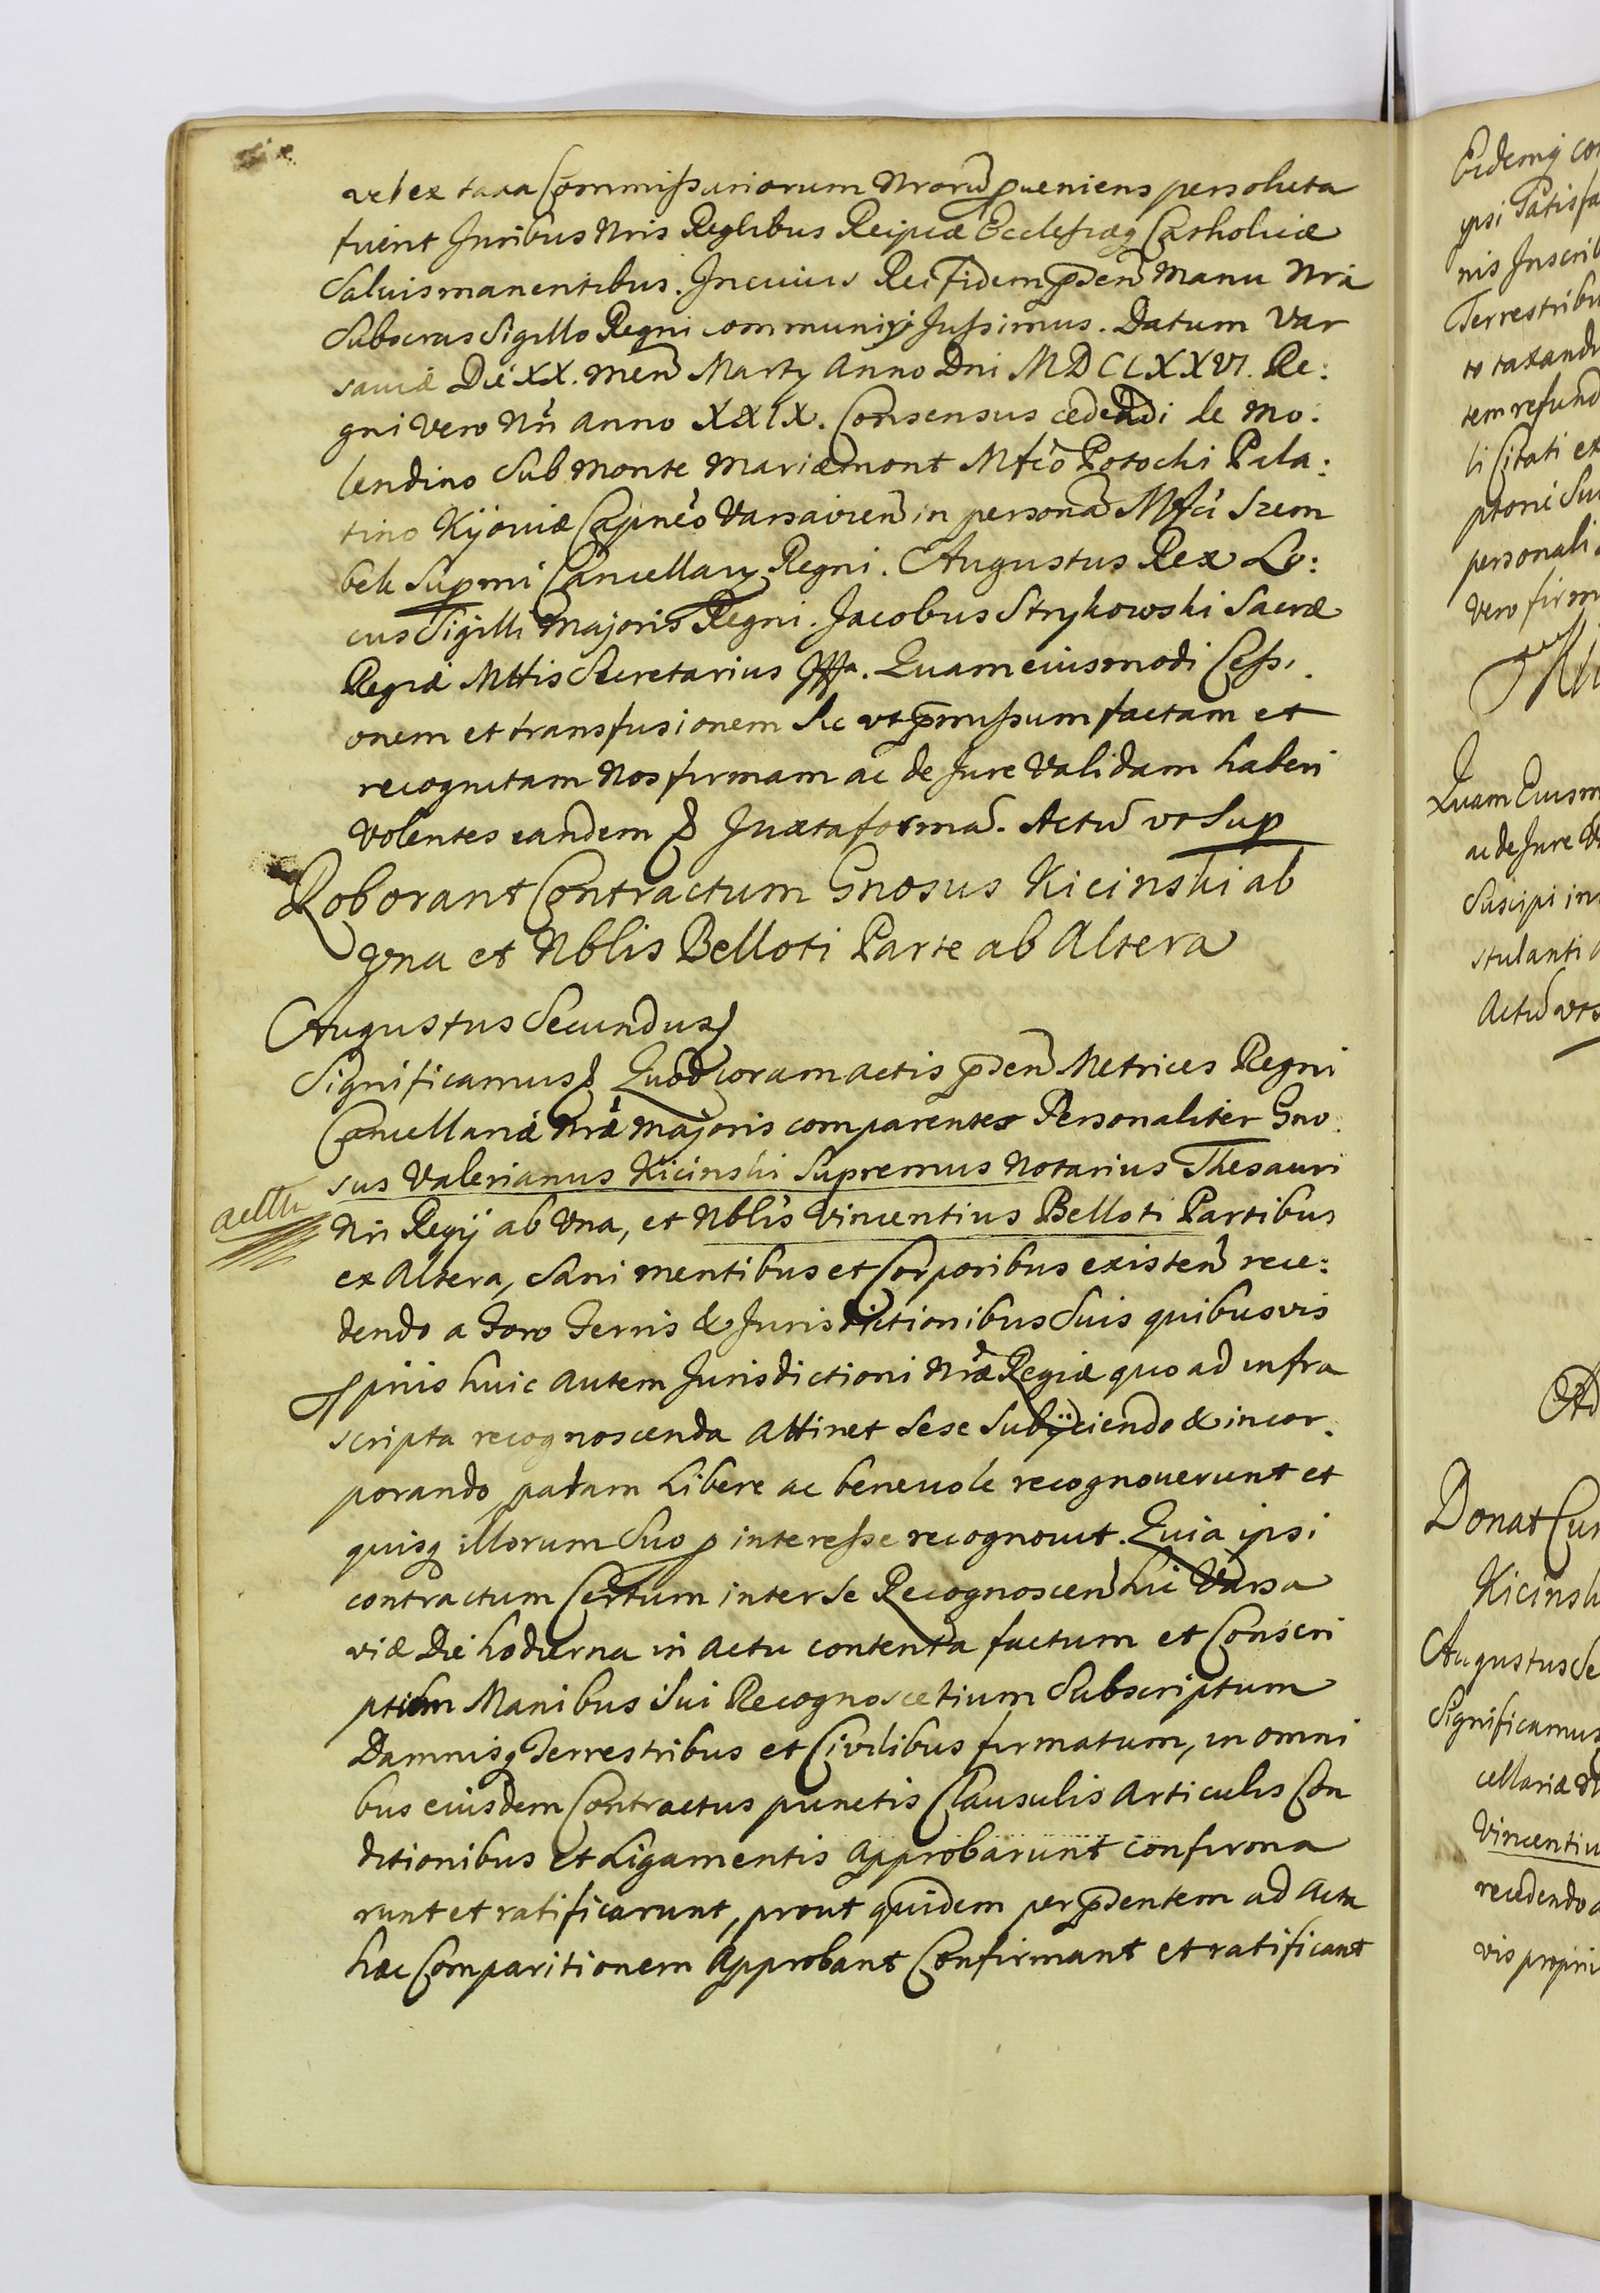 vel ex taxa Commissariorum Nrorũ pueniens persoluta
fuerit Juribus Nris Reglibus Reipcæ Ecclesiæq Catholicæ
Salvis manentibus. In cuius Rei Fidem pñsen Manu Nrã
Subscras Sigillo Regni communiri Jussimus. Datum Var
saviæ Die XX. Men Martij Anno Dni MDCCXXVI. Re:
gni Vero Nri Anno XXIX. Consensus cedendi de Mo:
lendino Sub Monte Mariæmont Mfco Potochi Pala:
tino Kijoviæ Capneo Varsavien in personã Mfci Szem
bek Supmi Cancellary Regni. Augustus Rex Lo:
cus Sigilli Majoris Regni. Jacobus Strykowski Sacræ
Regiæ Mttis Secretarius Mppa. Quam eiusmodi Cessi
onem et transfusionem Sic vt pmissum factam et
recognitam Nos firmam ac de Jure Validam haberi
Volentes eandem & Juxta formã. Actũ vt Sup
Roborant Contractum Gnosus Kicinski ab
Vna et Nblis Belloti Parte ab Altera
Augustus Secundus
Significamus & Quod coram actis psen Metrices Regni
Cancellariæ Nræ Majoris comparentes Personaliter Gno
sus Valerianus Kicinski Supremus Notarius Thesauri
Nri Regij ab Vna, et Nblis Vincentius Belloti Partibus
ex Altera, Sani mentibus et Corporibus existen rece:
dendo a Foro Terris & Jurisdictionibus Suis quibusvis
ppriis huic autem Jurisdictioni Nræ Regiæ quo ad infra
scripta recognoscenda Attinet Sese Subijciendo & incor:
porando palam Libere ac benevole recognoverunt et
quisq illorum Suo p interesse recognovit. Quia ipsi
contractum Certum inter Se Recognoscen hic Varsa
viæ Die hodierna in Actu contenta factum et Conscri
ptum Manibus Sui Recognoscetium Subscriptum
Damnisq Terrestribus et Civilibus firmatum, in omni
bus eiusdem Contractus punctis Clausulis Articulis Con
ditionibus et Ligamentis Approbarunt confirma
runt et ratificarunt, prout quidem per psentem ad Acta
hæc Comparitionem Approbant Confirmant et ratificant
Eidemq
ipsi Satisfa
nis Inscrib
Terrestribu
to taxand
tem refund
li Citati ex
personali
Vero firm
Quam Eiusm
ac de Jure V
Suscipi in
stulanti
Actũ vt s
Donat Cur
Kicinsk
Augustus Se
Significamus
cellariæ
Vincentiu
recedendo a
vis propri